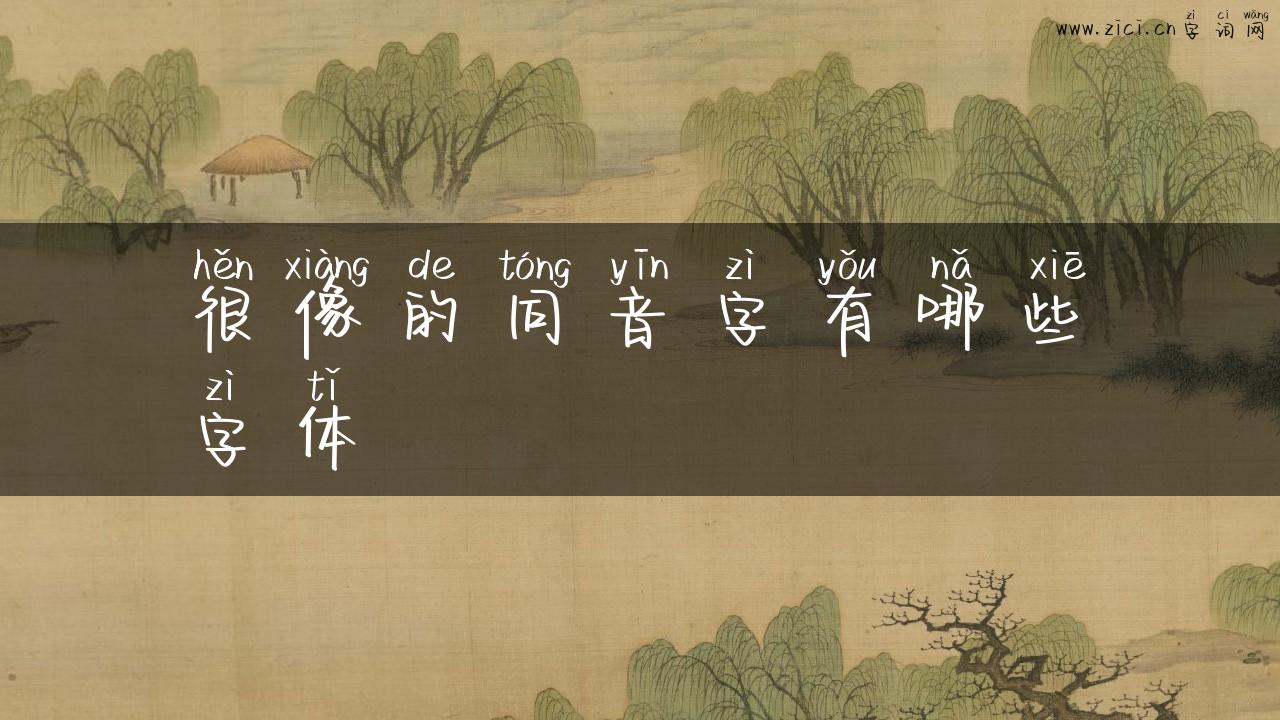 zì cí wǎng
www.zici.cn 字词网
hěn xiàng de tóng yīn zì yǒu nǎ xiē
很像的同音字有哪些
zì tǐ
字体